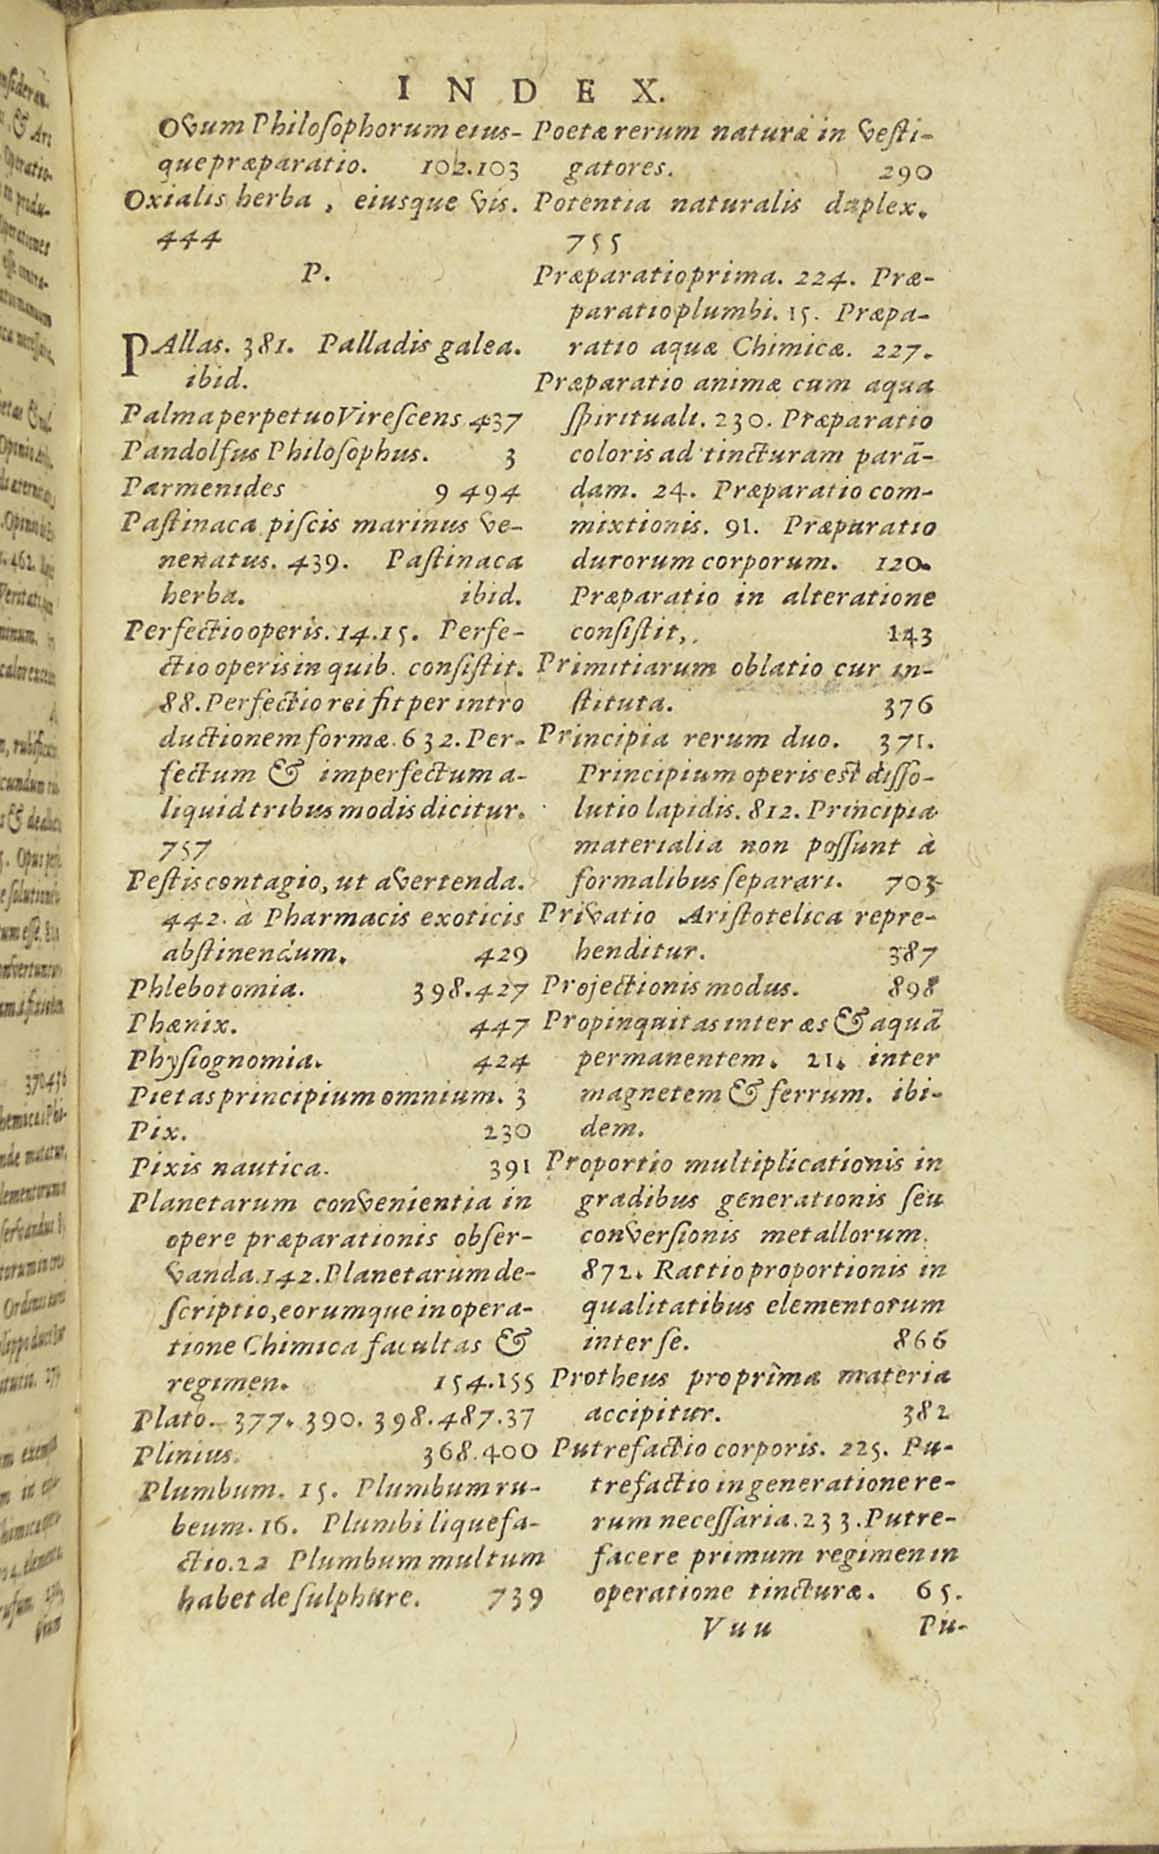 INDEX.
Ovum Philosophorum eius-
que præparatio. 102.103
Oxialis herba, eiusque vis.
444
P.
PAllas. 381. Palladis galea.
ibid.
Palma perpetuo Virescens 437
Pandolfus Philosophus. 3
Parmenides 9 494
Pastinaca piscis marinus ve-
nenatus. 439. Pastinaca
herba. ibid.
Perfectio operis. 14.15. Perfe-
ctio operis in quib. consistit.
88. Perfectio rei fit per intro
ductionem formæ. 632. Per-
fectum & imperfectum a-
liquid tribus modis dicitur.
757
Pestis contagio, ut avertenda.
442. à Pharmacis exoticis
abstinendum. 429
Phlebotomia. 398.427
Phænix. 447
Physiognomia. 424
Pietas principium omnium. 3
Pix. 230
Pixis nautica. 391
Planetarum convenientia in
opere præparationis obser-
vanda. 142. Planetarum de-
scriptio, eorumque in opera-
tione Chimica facultas &
regimen. 154.155
Plato. 377. 390. 398. 487. 37
Plinius. 368.400
Plumbum. 15. Plumbum ru-
beum. 16. Plumbi liquefa-
ctio. 22 Plumbum multum
habet de sulphure. 739
Poetæ rerum naturæ in vesti-
gatores. 290
Potentia naturalis duplex.
755
Præparatio prima. 224. Præ-
paratio plumbi. 15. Præpa-
ratio aquæ Chimicæ. 227.
Præparatio animæ cum aqua
spirituali. 230. Præparatio
coloris ad tincturam parā-
dam. 24. Præparatio com-
mixtionis. 91. Præparatio
durorum corporum. 120.
Præparatio in alteratione
consistit,. 143
Primitiarum oblatio cur in-
stituta. 376
Principia rerum duo. 371.
Principium operis est disso-
lutio lapidis. 812. Principia
materialia non possunt à
formalibus separari. 703
Privatio Aristotelica repre-
henditur. 387
Projectionis modus. 898
Propinquitas inter æs & aquā
permanentem. 21. inter
magnetem & ferrum. ibi-
dem.
Proportio multiplicationis in
gradibus generationis seu
conversionis metallorum.
872. Rattio proportionis in
qualitatibus elementorum
inter se. 866
Protheus pro prima materia
accipitur. 382
Putrefactio corporis. 225. Pu-
trefactio in generatione re-
rum necessaria. 233. Putre-
facere primum regimen in
operatione tincturæ. 65.
Vuu Pu-